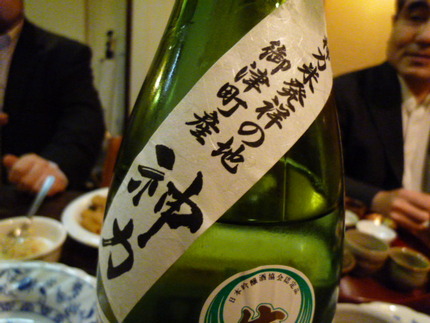 力米発祥の地
御津町産
神力
日本吟醸酒協会認定